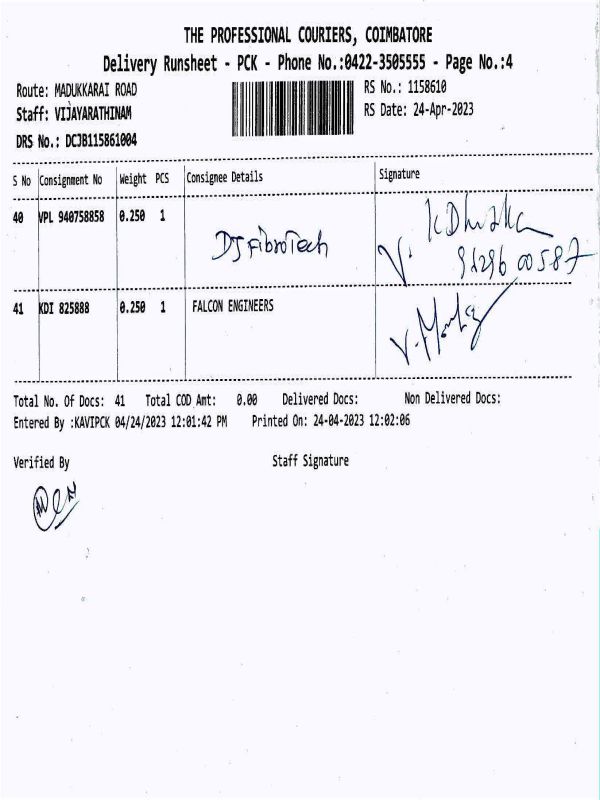 THE PROFESSIONAL COURIERS, COIMBATORE
Delivery Runsheet - PCK - Phone No.:0422-3505555 - Page No.:4
Route: MADUKKARAI ROAD RS No.: 1158610
Staff: VIJAYARATHINAM RS Date: 24-Apr-2023
DRS No.: DCJB115861004
S No Consignment No Weight PCS Consignee Details Signature
40 VPL 940758858 0.250 1
DJ FibroTech
41 KDI 825888 0.250 1 FALCON ENGINEERS
Total No. Of Docs: 41 Total COD Amt: 0.00 Delivered Docs: Non Delivered Docs:
Entered By :KAVIPCK 04/24/2023 12:01:42 PM Printed On: 24-04-2023 12:02:06
Verified By Staff Signature